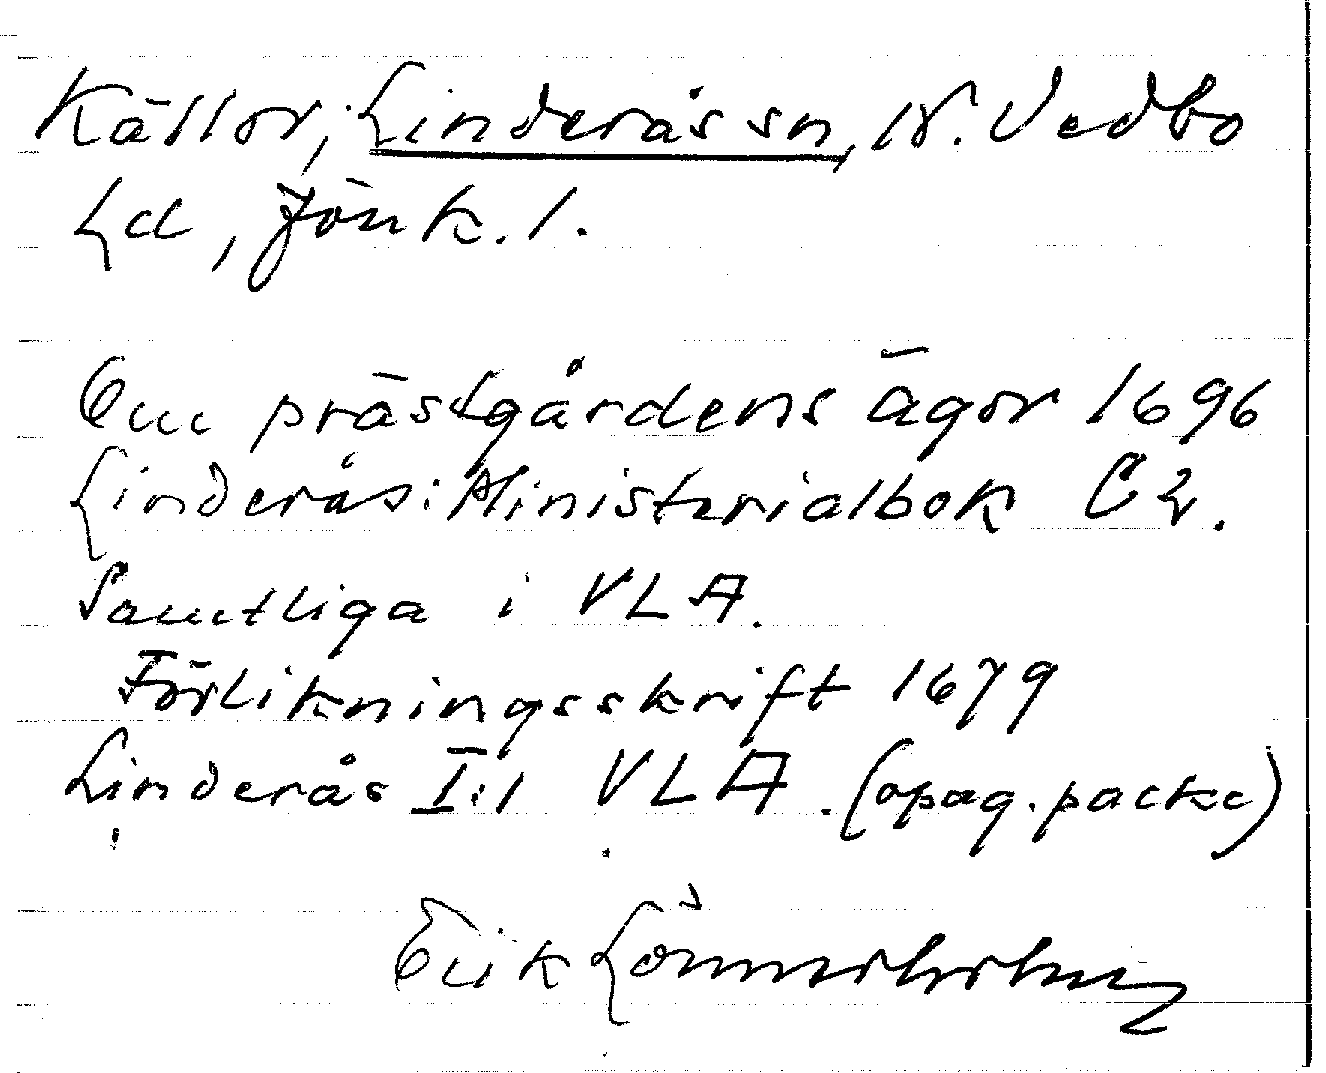 Källor, Linderås sn, N. Vedbo
hd, Jönk. l.
Om prästgårdens ägor 1696
Linderås: Ministerialbok C 2.
Samtliga i VLA.
Förlikningsskrift 1679
Linderås I:1 VLA. (opag. packe)
Erik Lönnerholm